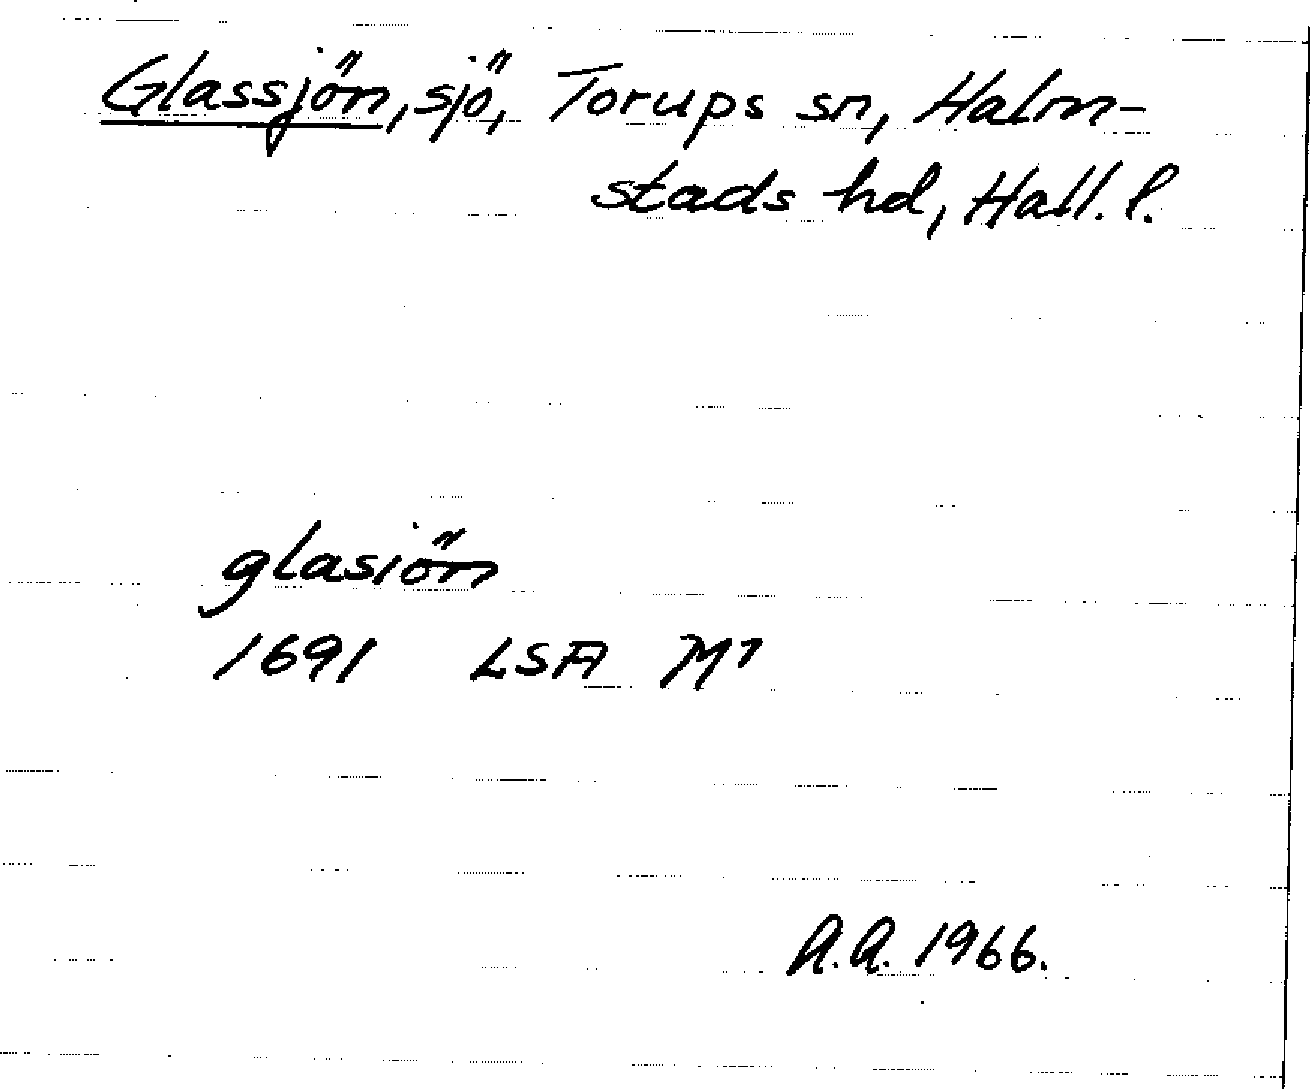 Glassjön, sjö, Torups sn, Halm-
stads hd, Hall. l.
glasiön
1691 LSA M¹
A.A. 1966.